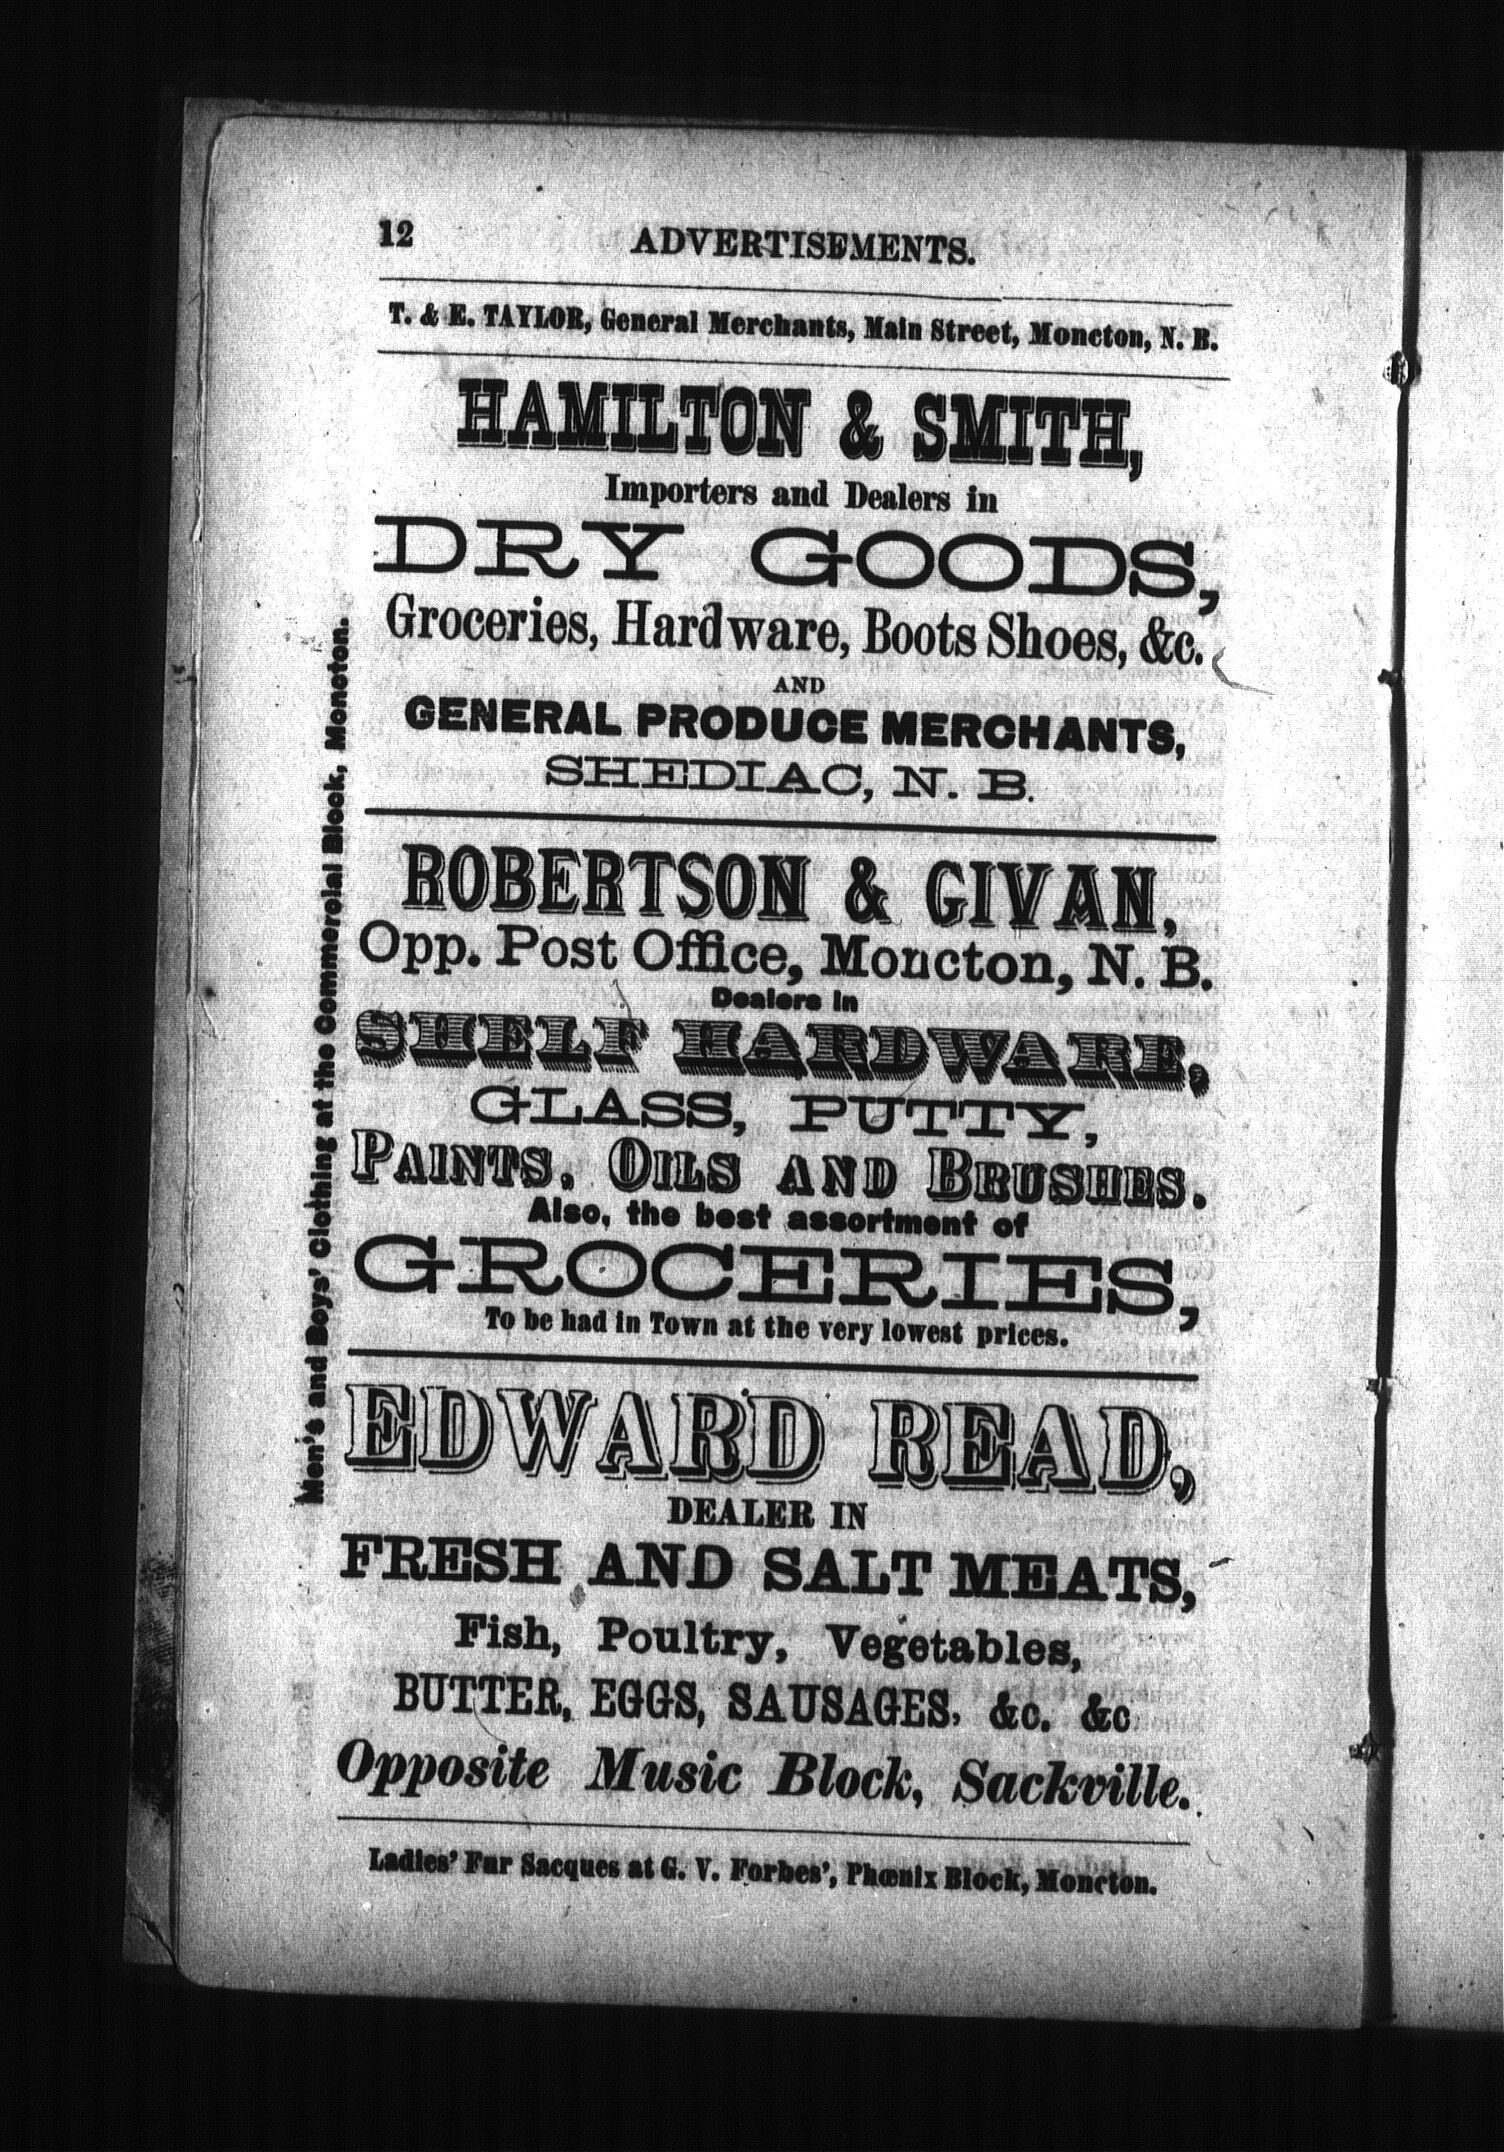 12 ADVERTISEMENTS.
T. & E. TAYLOR, General Merchants, Main Street, Moncton, N. B.
HAMILTON & SMITH,
Importers and Dealers in
DRY GOODS,
Groceries, Hardware, Boots Shoes, &c.
AND
GENERAL PRODUCE MERCHANTS,
SHEDIAC, N. B.
ROBERTSON & GIVAN,
Opp. Post Office, Moncton, N. B.
Dealers in
SHELF HARDWARE,
GLASS, PUTTY,
PAINTS, OILS AND BRUSHES.
Also, the best assortment of
GROCERIES,
To be had in Town at the very lowest prices.
EDWARD READ,
DEALER IN
FRESH AND SALT MEATS,
Fish, Poultry, Vegetables,
BUTTER, EGGS, SAUSAGES, &c. &c
Opposite Music Block, Sackville.
Ladies' Fur Sacques at G. V. Forbes', Phœnix Block, Moncton.
Men's and Boys' Clothing at the Commercial Block, Moncton.